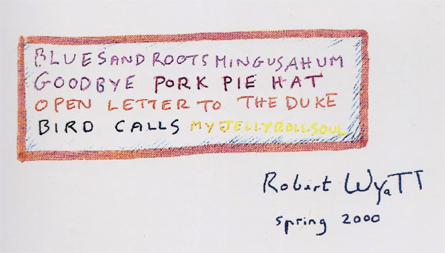 BLUES AND ROOTS MINGUS AH UM
GOODBYE PORK PIE HAT
OPEN LETTER TO THE DUKE
BIRD CALLS MY JELLY ROLL SOUL
Robert WyaTT
spring 2000